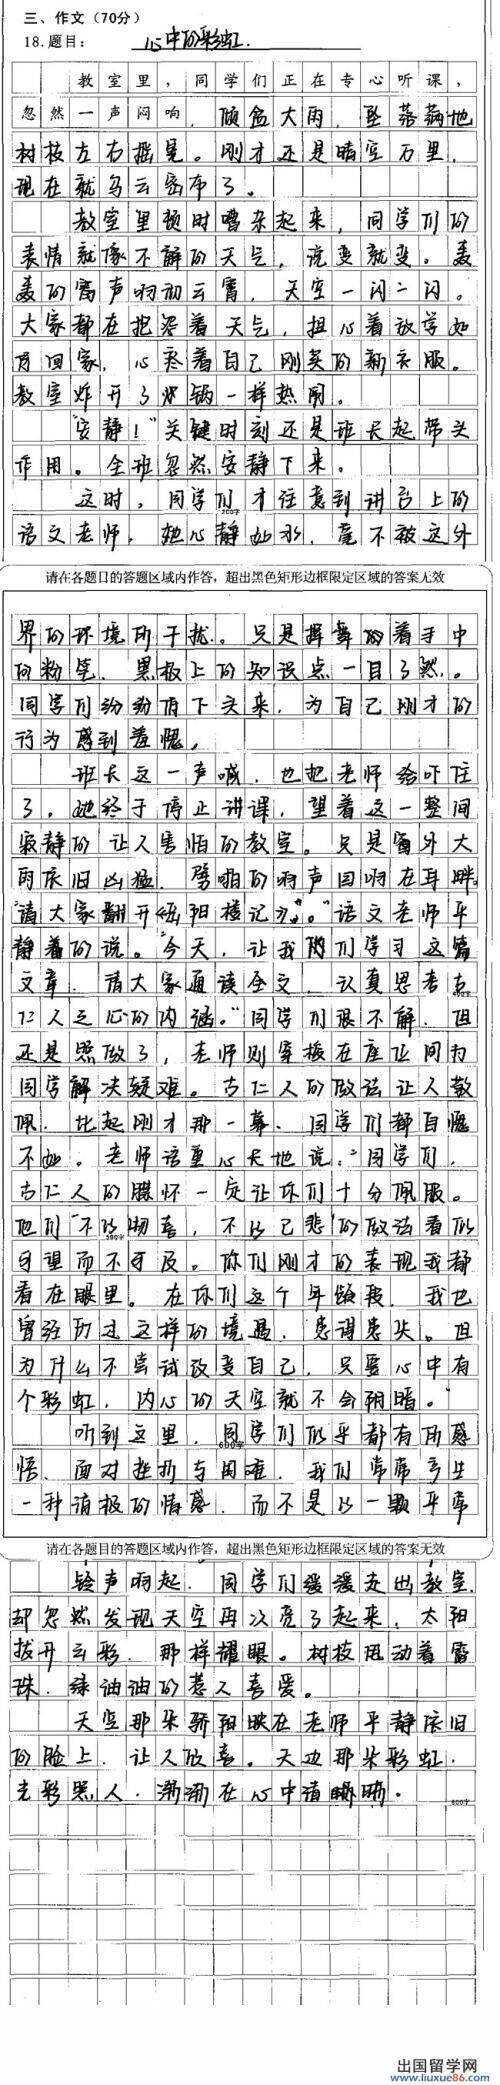 三、作文（70分）
18.题目： 心中的彩虹.
教室里，同学们正在专心听课，
忽然一声闷响，倾盆大雨，坠落满地
树枝左右摇晃。刚才还是晴空万里，
现在就乌云密布了。
教室里顿时嘈杂起来，同学们的
表情就像不解的天气，说变就变。轰
轰的雷声响彻云霄，天空一闪一闪。
大家都在抱怨着天气，担心着放学如
何回家，心疼着自己刚买的新衣服。
教室炸开了火锅一样热闹。
“安静！”关键时刻还是班长起带头
作用。全班忽然安静下来。
这时，同学们才注意到讲台上的
200字
语文老师，她心静如水，毫不被这外
请在各题目的答题区域内作答，超出黑色矩形边框限定区域的答案无效
界的环境所干扰。只是挥舞的着手中
的粉笔，黑板上的知识点一目了然。
同学们纷纷俯下头来，为自己刚才的
行为感到羞愧。
班长这一声喊，也把老师给吓住
了，她终于停止讲课，望着这一整间
寂静的让人害怕的教室。只是窗外大
雨依旧凶猛，劈啪的响声回响在耳畔。
“请大家翻开《岳阳楼记》。”语文老师平
静着的说。“今天，让我们学习这篇
文章，请大家通读全文，认真思考古
400字
仁人之心的内涵。”同学们很不解，但
还是照做了，老师则穿梭在座位间为
同学解决疑难。古仁人的做法让人敬
佩，比起刚才那一幕，同学们都自愧
不如。老师语重心长地说：“同学们，
古仁人的胸怀一定让你们十分佩服。
他们‘不以物喜，不以己悲’的做法看似
500字
可望而不可及。你们刚才的表现我都
看在眼里。在你们这个年龄段，我也
曾经历过这样的境遇，患得患失。但
为什么不尝试改变自己，只要心中有
个彩虹，内心的天空就不会阴暗。”
听到这里，同学们似乎都有所感
600字
悟，面对挫折与困难，我们常常产生
一种消极的情感，而不是以一颗平常
请在各题目的答题区域内作答，超出黑色矩形边框限定区域的答案无效
铃声响起，同学们缓缓走出教室，
却忽然发现天空再次亮了起来，太阳
拨开云彩，那样耀眼。树枝甩动着露
珠，绿油油的惹人喜爱。
天空那朵骄阳映在老师平静依旧
的脸上，让人欣喜。天边那朵彩虹，
光彩照人，渐渐在心中清晰。
800字
出国留学网
www.liuxue86.com